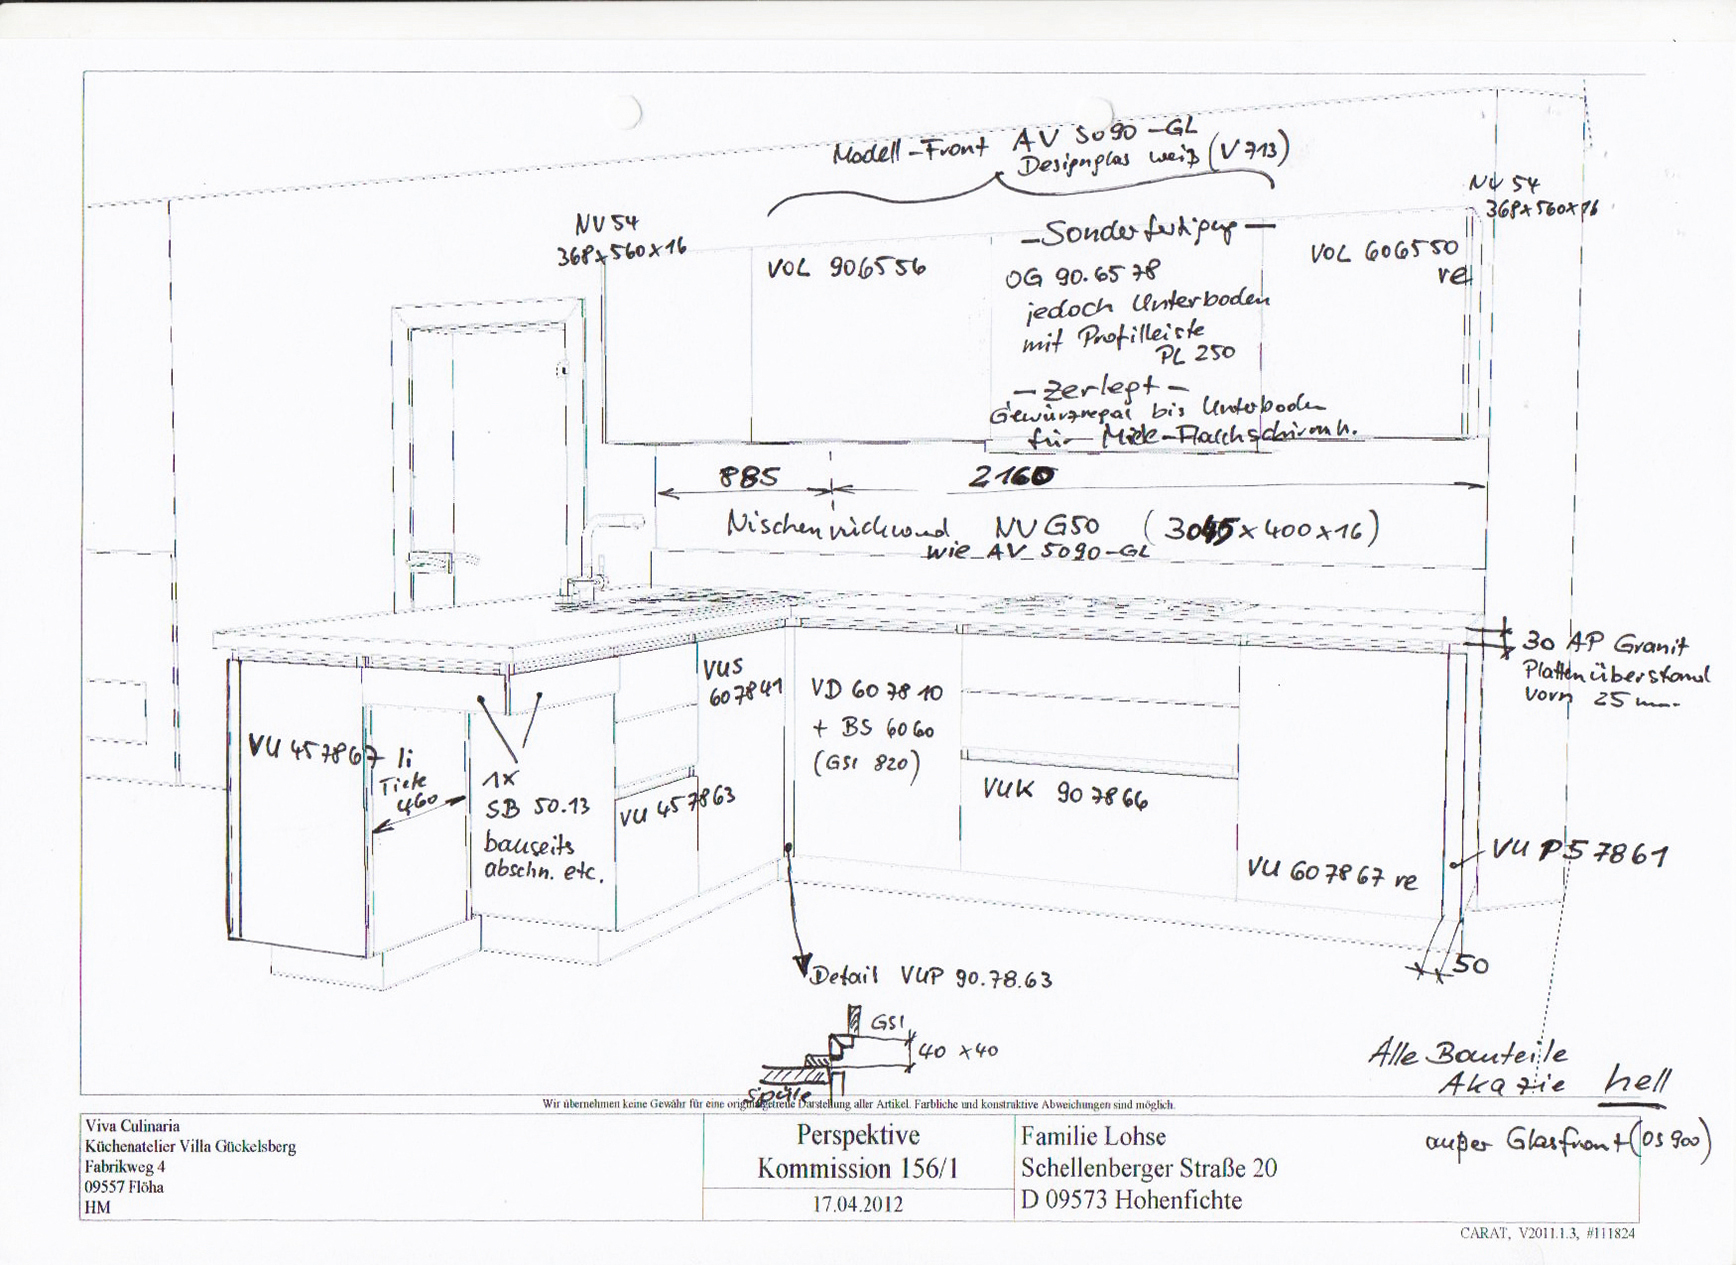 Modell-Front AV 5090-GL
Designglas weiß (V713)
NV 54
368x560x16
NV 54
368x560x16
VOL 906556
-Sonderfertigung-
OG 90.6578
jedoch Unterboden
mit Profilleiste
PL 250
-zerlegt-
Gewürzregal bis Unterboden
für Miele-Flachschirmh.
VOL 606550
re
885
2160
Nischenrückwand NVG50 (3045x400x16)
wie AV 5090-GL
30 AP Granit
Plattenüberstand
vorn 25 mm
VUS
607841
VD 607810
+ BS 6060
(GSI 820)
VU 457867 li
Tiefe
460
1x
SB 50.13
bauseits
abschn. etc.
VU 457863
VUK 907866
VU 607867 re
VUP 57861
50
Detail VUP 90.78.63
GSI
40 x 40
Spüle
Alle Bauteile
Akazie hell
außer Glasfront (DS 900)
Wir übernehmen keine Gewähr für eine originalgetreue Darstellung aller Artikel. Farbliche und konstruktive Abweichungen sind möglich.
Viva Culinaria
Küchenatelier Villa Gückelsberg
Fabrikweg 4
09557 Flöha
HM
Perspektive
Kommission 156/1
17.04.2012
Familie Lohse
Schellenberger Straße 20
D 09573 Hohenfichte
CARAT, V2011.1.3, #111824